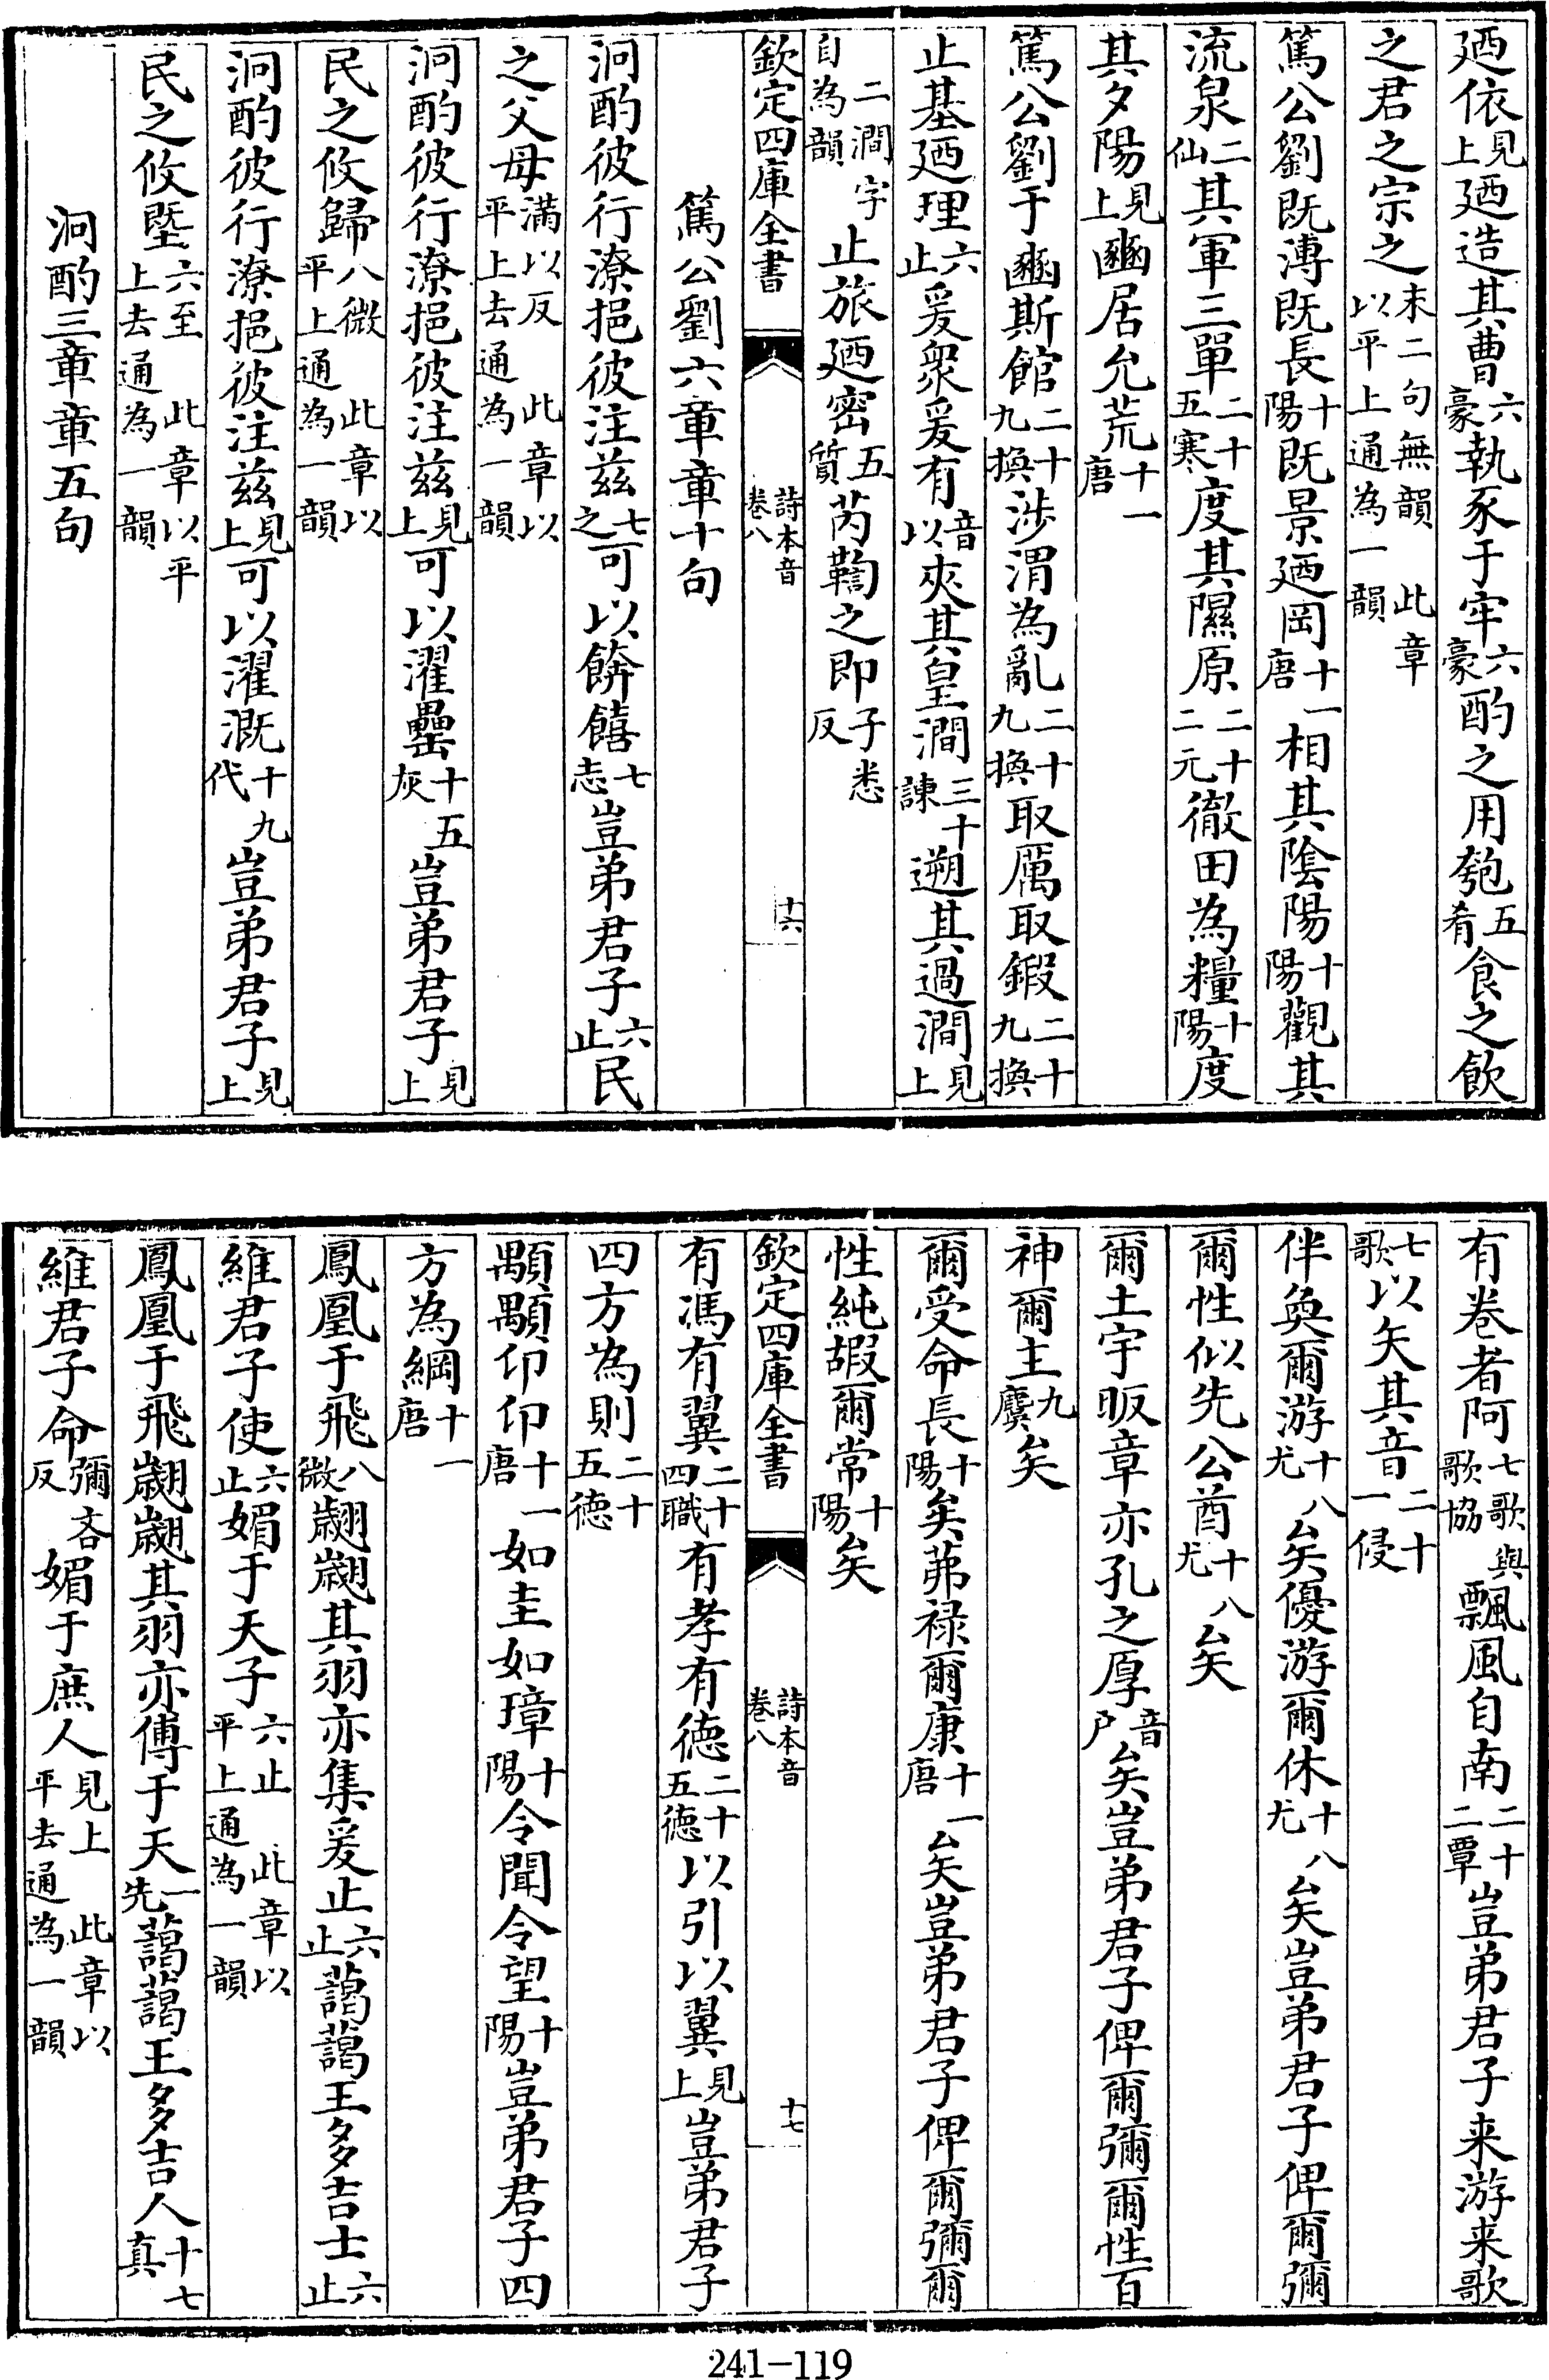 廼依見上廼造其曹六豪執豕于牢六豪酌之用匏五肴食之飲
之君之宗之末二句無韻 此章以平上通為一韻
篤公劉既溥既長十陽既景廼岡十一唐相其陰陽十陽觀其
流泉二仙其軍三單二十五寒度其隰原二十二元徹田為糧十陽度
其夕陽見上豳居允荒十一唐
篤公劉于豳斯館二十九換涉渭為亂二十九換取厲取鍛二十九換
止基廼理六止爰衆爰有音以夾其皇澗三十諫遡其過澗見上
二澗字自為韻止旅廼密五質芮鞫之即子悉反
欽定四庫全書 詩本音卷八 十六
篤公劉六章章十句
泂酌彼行潦挹彼注兹七之可以餴饎七志豈弟君子六止民
之父母滿以反 此章以平上去通為一韻
泂酌彼行潦挹彼注兹見上可以濯罍十五灰豈弟君子見上
民之攸歸八微 此章以平上通為一韻
泂酌彼行潦挹彼注兹見上可以濯溉十九代豈弟君子見上
民之攸塈六至 此章以平上去通為一韻
泂酌三章章五句
有卷者阿七歌歌與歌協飄風自南二十二覃豈弟君子来游来歌
七歌以矢其音二十一侵
伴奐爾游十八尤矣優游爾休十八尤矣豈弟君子俾爾彌
爾性似先公酋十八尤矣
爾土宇昄章亦孔之厚音戶矣豈弟君子俾爾彌爾性百
神爾主九麌矣
爾受命長十陽矣茀禄爾康十一唐矣豈弟君子俾爾彌爾
性純嘏爾常十陽矣
欽定四庫全書 詩本音卷八 十七
有馮有翼二十四職有孝有德二十五德以引以翼見上豈弟君子
四方為則二十五德
顒顒卬卬十一唐如圭如璋十陽令聞令望十陽豈弟君子四
方為綱十一唐
鳳凰于飛八微翽翽其羽亦集爰止六止藹藹王多吉士六止
維君子使六止媚于天子六止 此章以平上通為一韻
鳳凰于飛翽翽其羽亦傅于天一先藹藹王多吉人十七真
維君子命彌吝反媚于庶人見上 此章以平去通為一韻
241-119